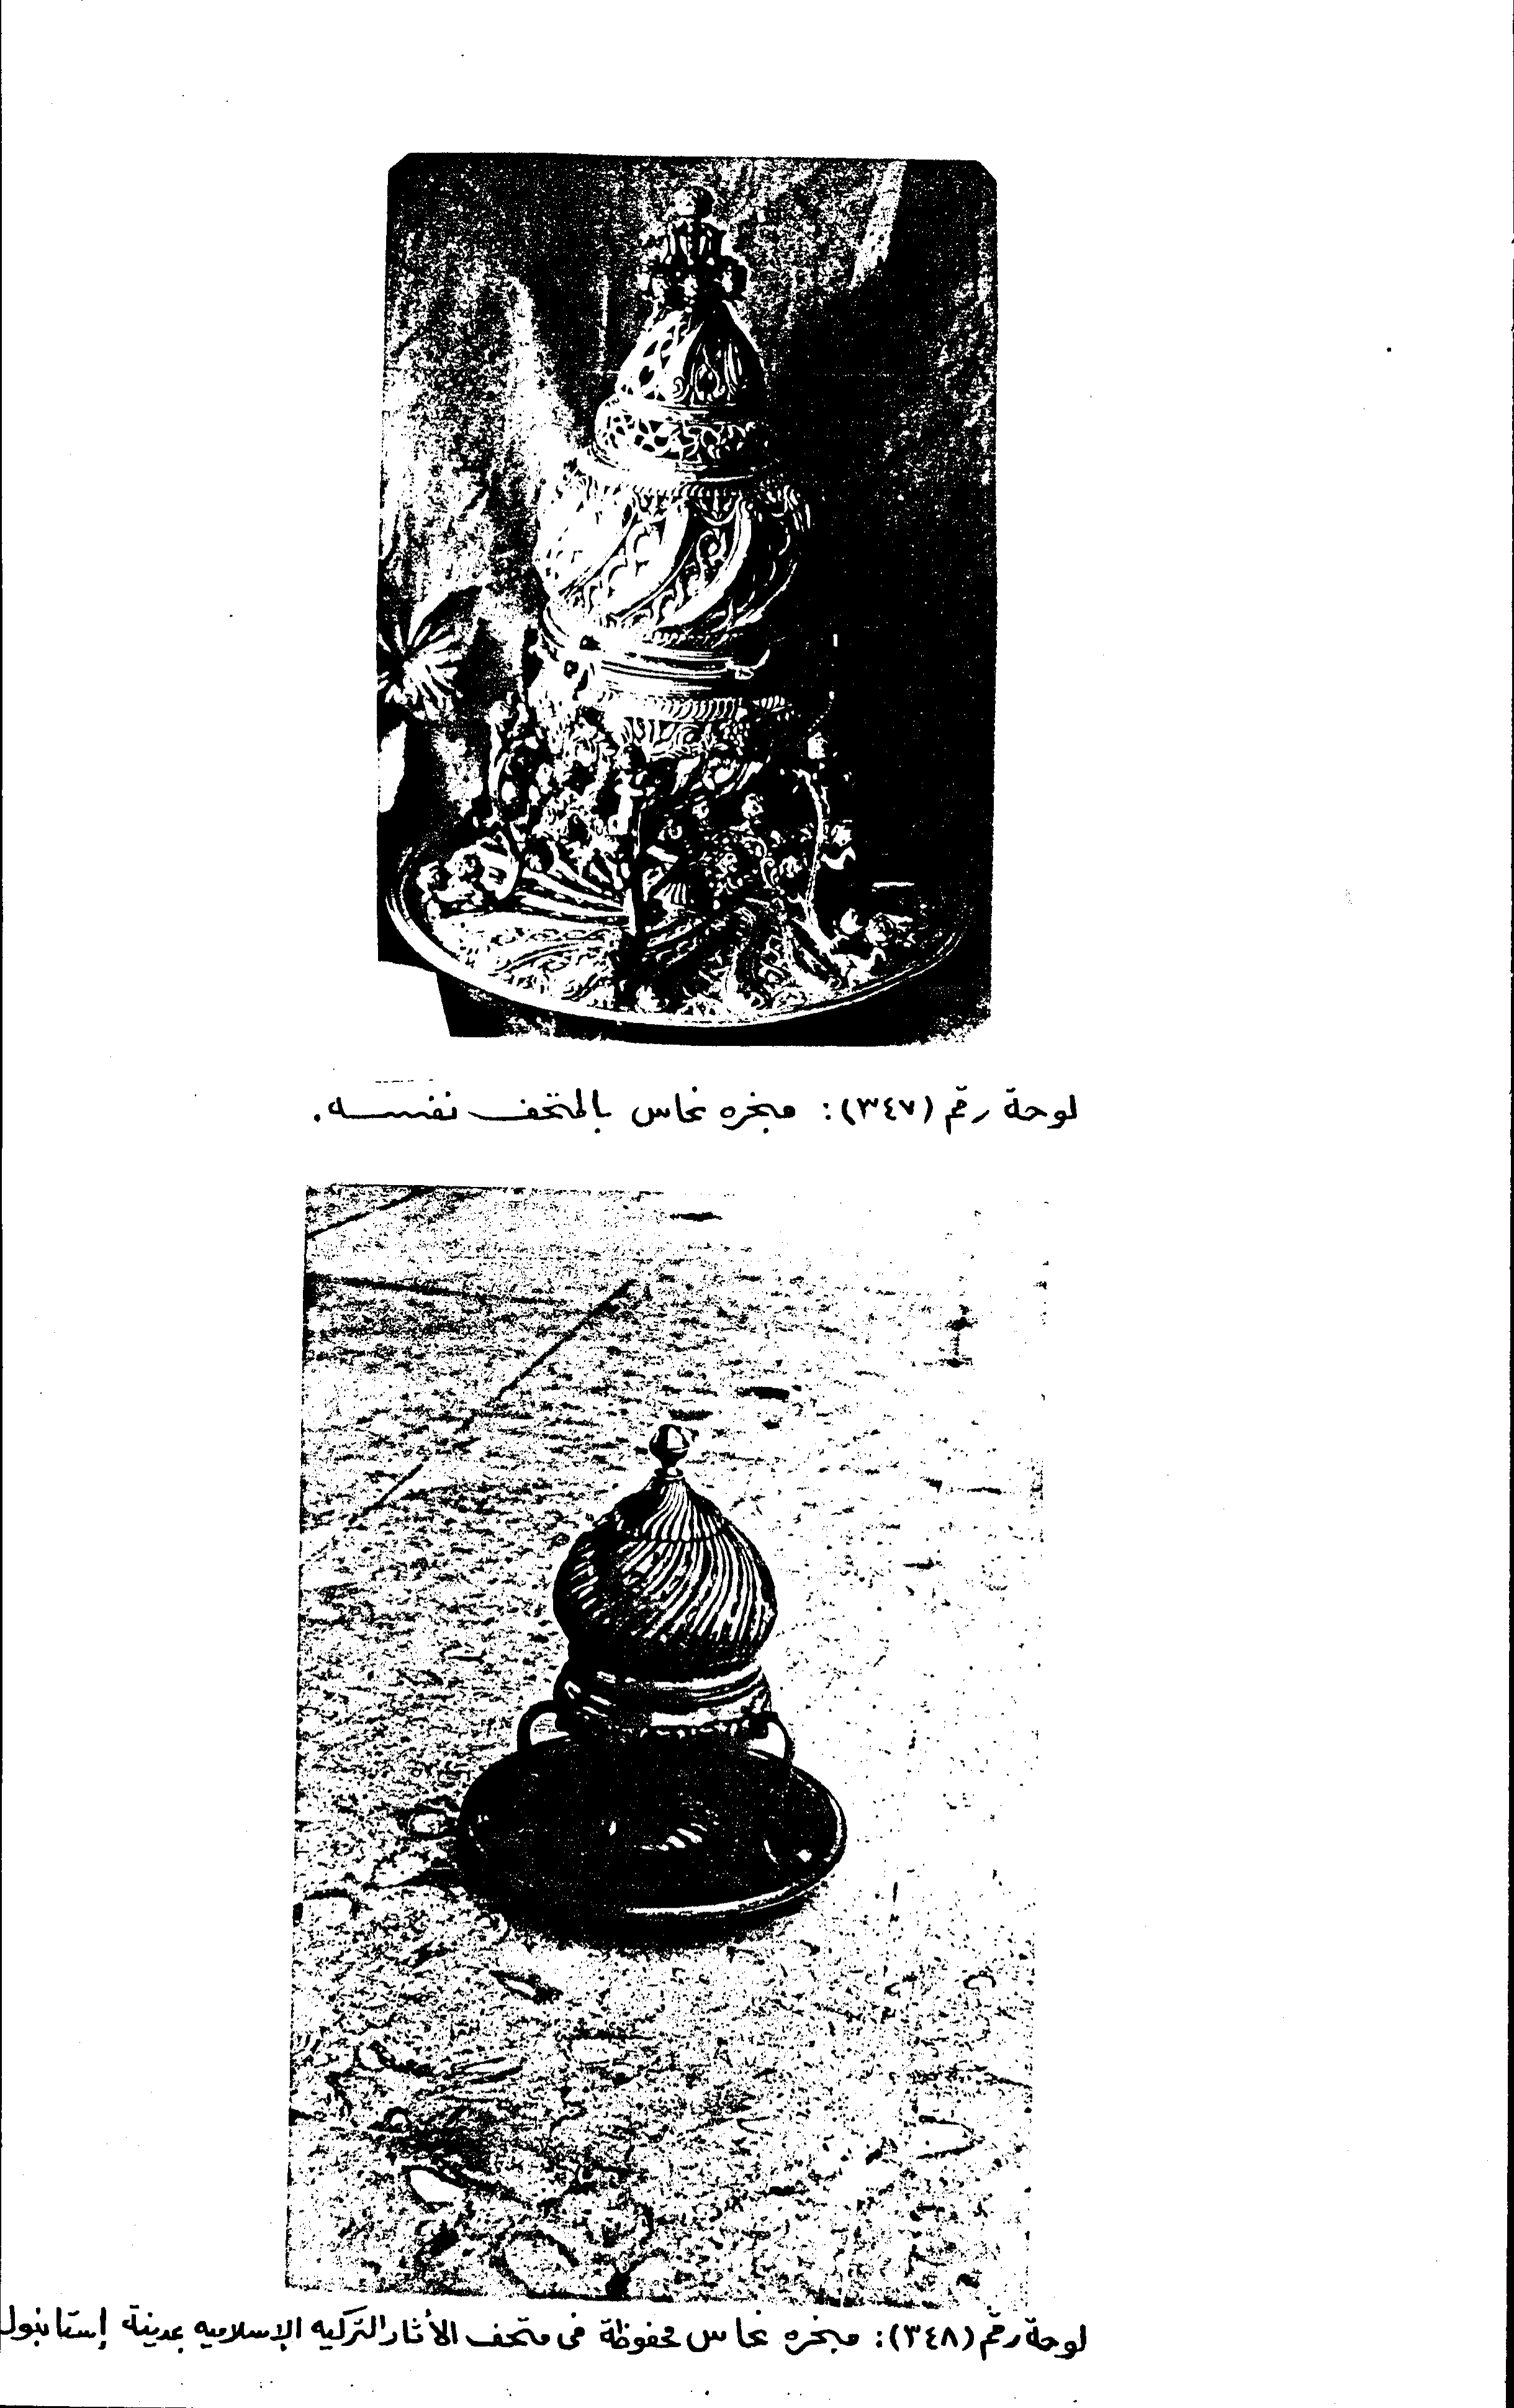 لوحة رقم (٣٤٧): مبخره نحاس بالمتحف نفسه.
لوحة رقم (٣٤٨): مبخره نحاس محفوظة فى متحف الأثار التركيه الإسلاميه بمدينة إستانبول